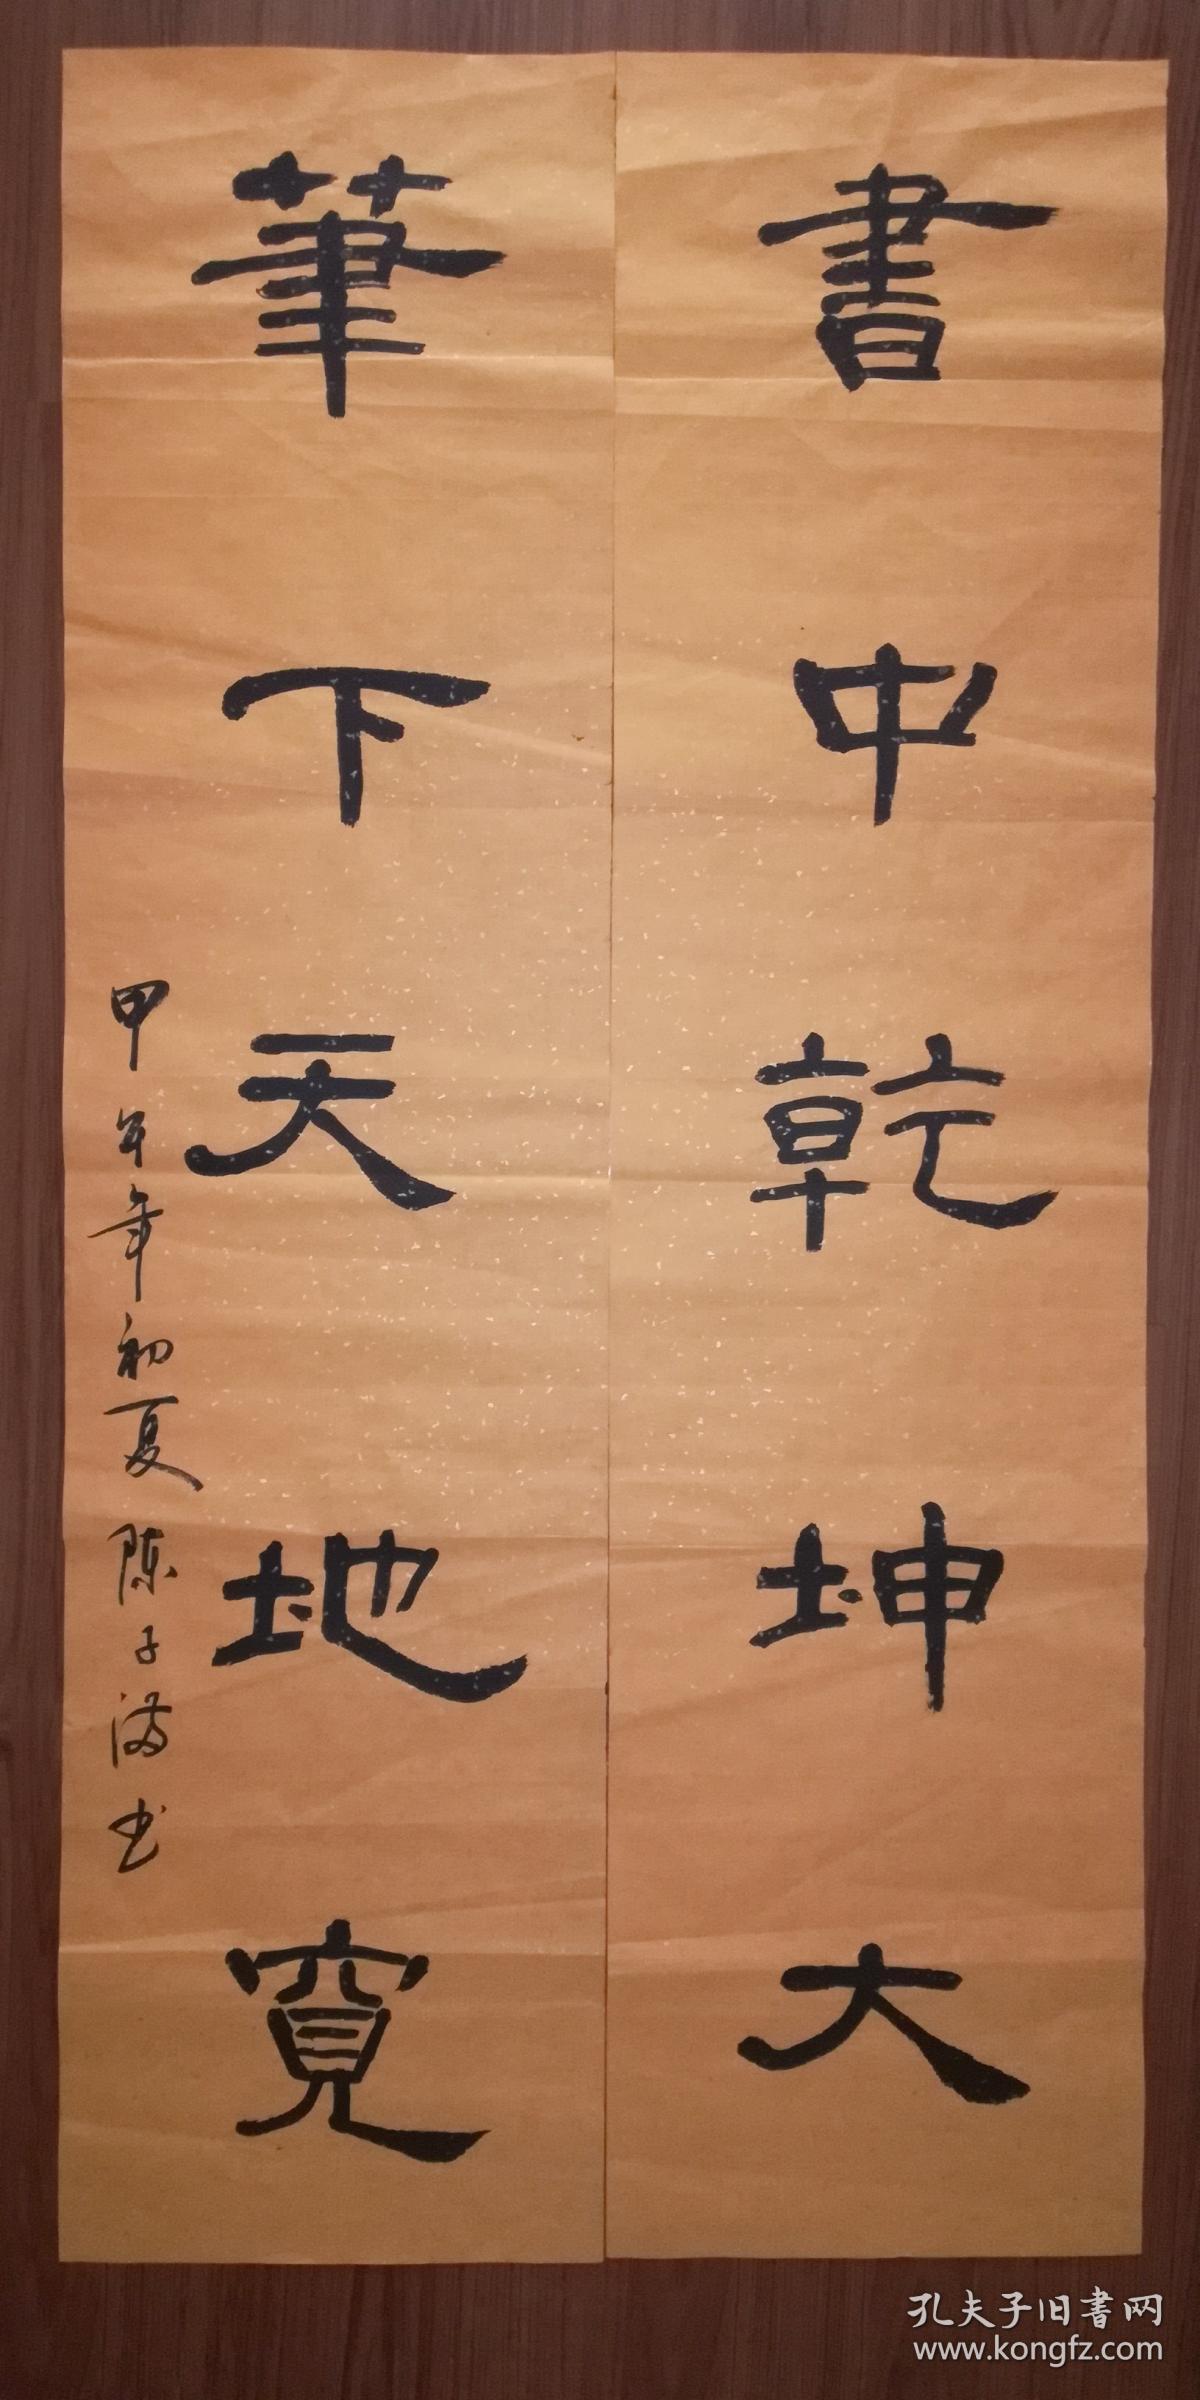 書中乾坤大
筆下天地寬
甲午年初夏 陈子满书
孔夫子旧書网
www.kongfz.com